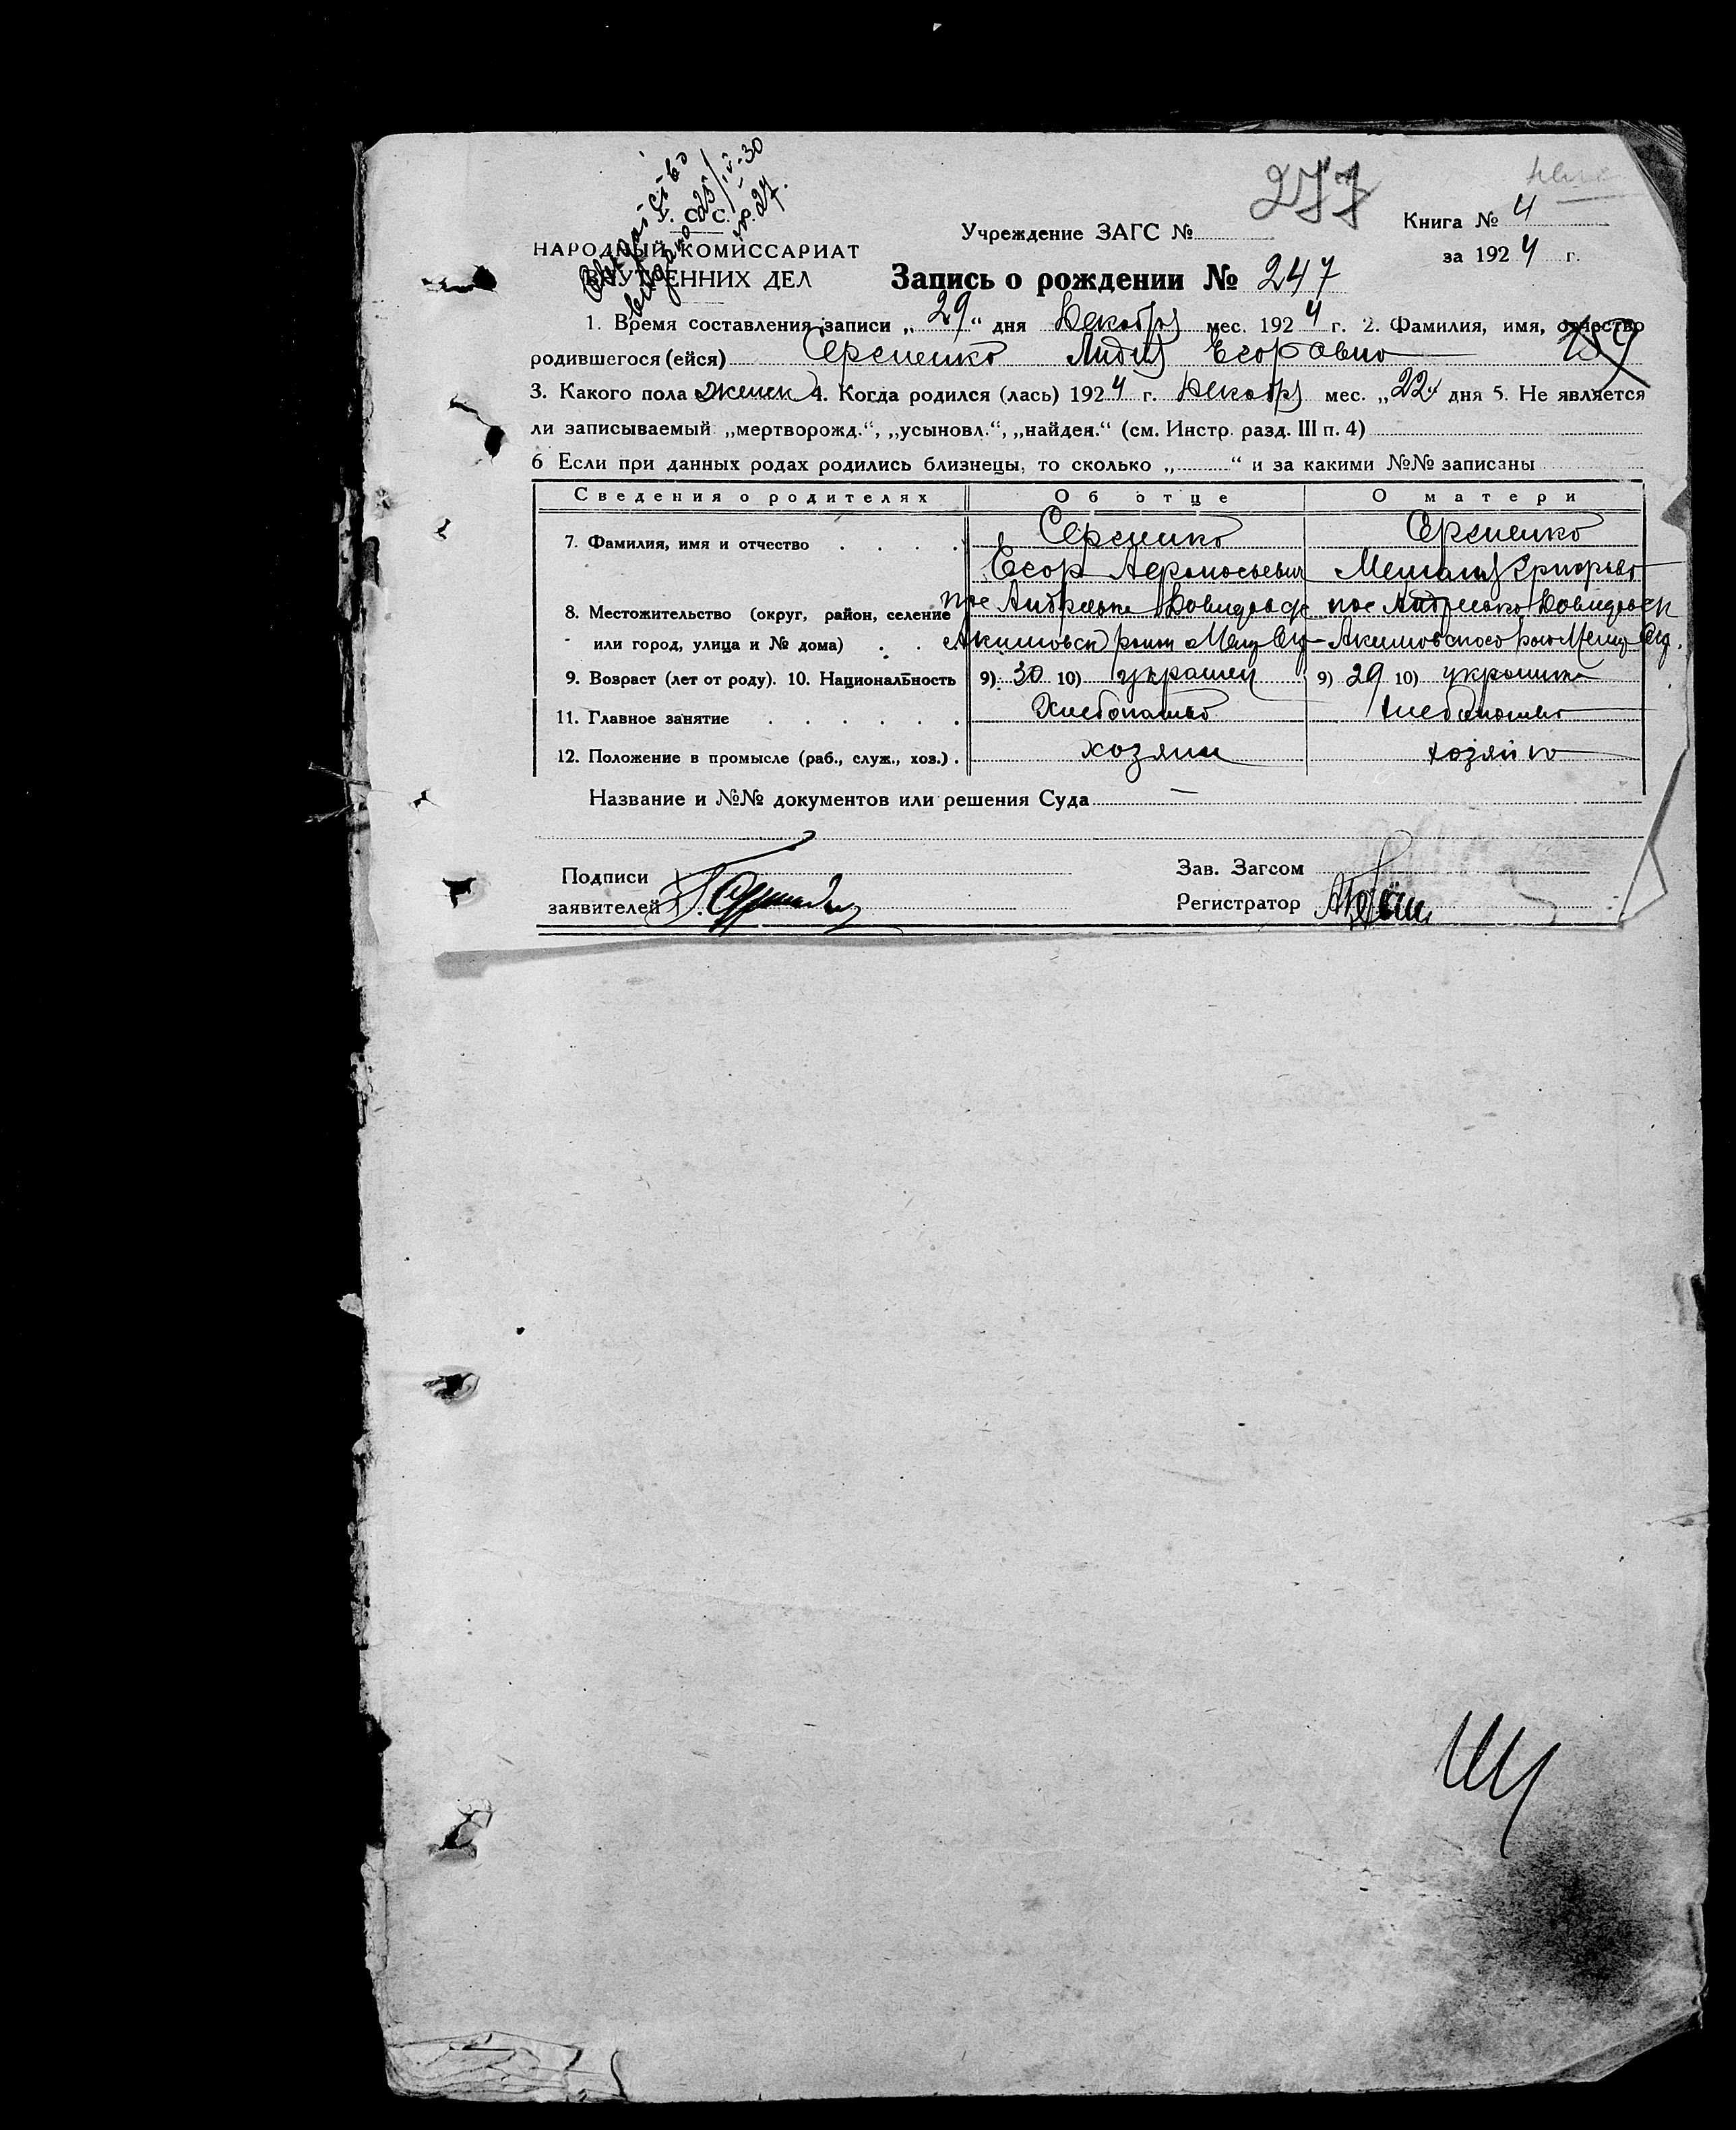 277
Учреждение ЗАГС №
Книга № 4
за 1924 г.
НАРОДНЫЙ КОМИССАРИАТ
ВНУТРЕННИХ ДЕЛ
Запись о рождении № 247
1. Время составления записи „29“ дня Декабря мес. 1924 г. 2. Фамилия, имя, отчество
родившегося (ейся) Сергиенко Лидия Егоровно 159
3. Какого пола женск 4. Когда родился (лась) 1924 г. Декабря мес. „22“ дня 5. Не является
ли записываемый „мертворожд.“, „усыновл.“, „найден.“ (см. Инстр. разд. III п. 4)
6 Если при данных родах родились близнецы, то сколько „ “ и за какими №№ записаны
Сведения о родителях Об отце О матери
7. Фамилия, имя и отчество Сергиенко Сергиенко
Егор
8. Местожительство (округ, район, селение пос Давидовск пос Давидовск
или город, улица и № дома) Акимовск Мелит Окр Акимовского Мелит Окр.
9. Возраст (лет от роду). 10. Национальность 9) 30 10) украинец 9) 29 10) украинка
11. Главное занятие Хлебопашество Хлебопашество
12. Положение в промысле (раб., служ., хоз.) хозяин хозяйка
Название и №№ документов или решения Суда —
Подписи
заявителей
Зав. Загсом
Регистратор